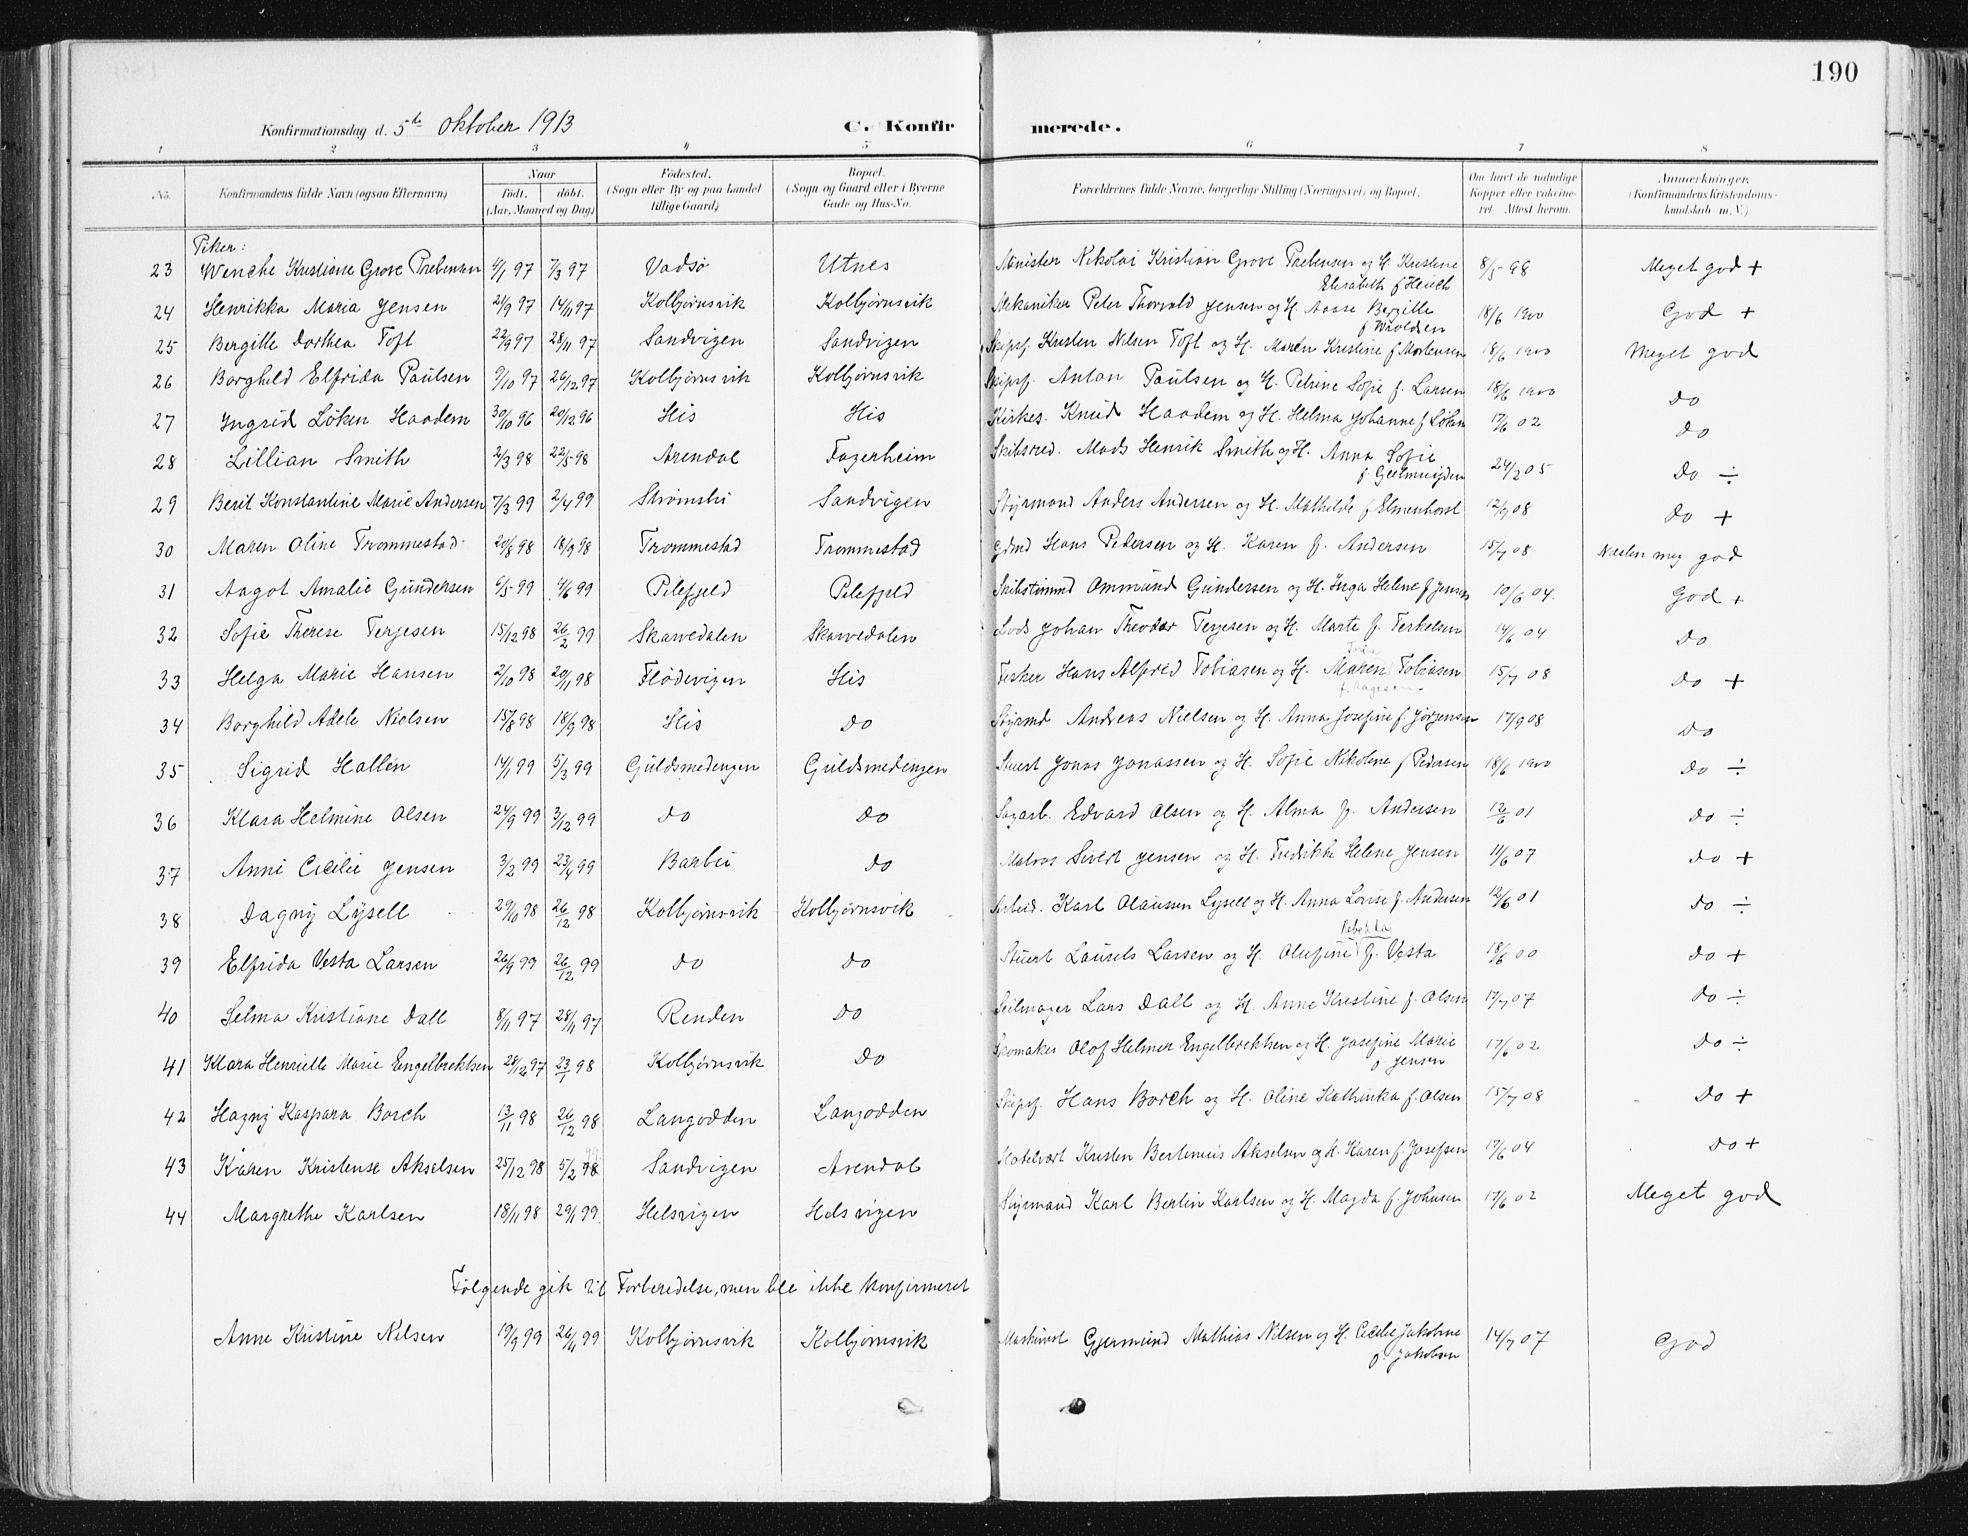 190
Konfirmationsdag d. 5te Oktober 1913 C. Konfirmerede.
1 2 3 4 5 6 7 8
No. Konfirmandens fulde Navn (ogsaa Efternavn) Naar født. døbt. (Aar, Maaned og Dag) Fødested. (Sogn eller By og paa Landet tillige Gaard) Bopæl. (Sogn og Gaard eller i Byerne Gade og Hus-No. Forældrenes fulde Navne, borgerlige Stilling (Næringsvei) og Bopæl. Om havt de naturlige Kopper eller vaccineret Attest herom. Anmærkninger. (Konfirmandens Kristendomskundskab m. V.)
Piker:
23 Wenche Kristiane Grove Prebensen 4/1 97 7/3 97 Vadsø Utnes Minister Nikolai Kristian Grove Prebensen og H. Kristine Elisabeth f. Heuch 8/5 98 Meget god +
24 Henrikka Maria Jensen 21/9 97 14/11 97 Kolbjørnsvik Kolbjørnsvik Mekaniker Peter Thorvald Jensen og H. Aasse Bergitte f. Wroldsen 18/6 1900 God +
25 Bergitte Dorthea Toft 22/9 97 28/11 97 Sandvigen Sandvigen Skipsf. Kristen Nilsen Toft og H. Maren Kristine f. Mortensen 18/6 1900 Meget god
26 Borghild Elfrida Paulsen 9/10 97 26/12 97 Kolbjørnsvik Kolbjørnsvik Skipsf. Anton Paulsen og H. Petrine Sofie f. Larsen 18/6 1900 do
27 Ingrid Løken Haadem 30/10 96 20/12 96 His His Kirkes. Knud Haadem og H. Helma Johanne f. Løken 17/6 02 do
28 Lillian Smith 2/3 98 22/5 98 Arendal Fagerheim Skibsred. Mads Henrik Smith og H. Anna Sofie f. Geelmuyden 24/2 05 do ÷
29 Berit Konstantine Marie Andersen 7/3 99 2/4 99 Strømsbu Sandvigen Styrmand Anders Andersen og H. Mathilde f. Elmenhorst 12/7 08 do +
30 Maren Oline Trommestad 20/8 98 18/9 98 Trommestad Trommestad Grdmd Hans Pedersen og H. Karen f. Andersen 15/7 08 Næsten meg god
31 Aagot Amalie Gundersen 6/5 99 4/6 99 Pilefjeld Pilefjeld Skibstømmd Ommund Gundersen og H. Inga Helene f. Jensen 10/6 04 God +
32 Sofie Therese Terjesen 15/12 98 26/2 99 Skarvedalen Skarvedalen Lods Johan Theodor Terjesen og H. Marte f. Terkelsen 14/6 04 do
33 Helga Marie Hansen 2/10 98 20/11 98 Flødevigen His Fisker Hans Alfred Tobiasen og H. Maren Tobiasen f. Aagesen 15/7 08 do +
34 Borghild Adele Nielsen 15/8 98 18/9 98 His do Styrmd Andreas Nielsen og H. Anna Josefine f. Jørgensen 17/9 08 do
35 Sigrid Hallén 14/1 99 5/3 99 Guldsmedengen Guldsmedengen Stuert Jonas Jonassen og H. Sofie Nikoline f. Pedersen 18/6 1900 do ÷
36 Klara Helmine Olsen 24/9 99 3/12 99 do do Sagarb. Edvard Olsen og H. Alma f. Andersen 12/6 01 do ÷
37 Anni Cicilie Jensen 3/2 99 23/4 99 Barbu do Matros Sivert Jensen og H. Fredrikke Helene Jensen 11/6 07 do +
38 Dagny Lysell 29/10 98 26/12 98 Kolbjørnsvik Kolbjørnsvik Arbeid. Karl Olaussen Lysell og H. Anna Lovise f. Andersen 12/6 01 do ÷
39 Elfrida Vesta Larsen 26/9 99 26/12 99 do do Stuert Laurits Larsen og H. Olufine Rebekka f. Vesta 18/6 00 do +
40 Selma Kristiane Dall 8/11 97 28/11 97 Renden do Seilmager Lars Dall og H. Anne Kristine f. Olsen 17/7 07 do ÷
41 Klara Henriette Marie Engelbrektsen 28/12 97 23/1 98 Kolbjørnsvik do Skomaker Olof Helmer Engelbrektsen og H. Josefine Marie f. Jensen 17/6 02 do ÷
42 Hagny Kaspara Borch 13/11 98 26/12 98 Langodden Langodden Skipsf. Hans Borch og H. Oline Kathinka f. Olsen 15/7 08 do +
43 Karen Kristense Akselsen 25/12 98 5/2 98 99 Sandvigen Arendal Hotelvært Kristen Bertinius Akselsen og H. Karen f. Josefsen 17/6 04 do +
44 Margrethe Karlsen 18/11 98 29/1 99 Helsvigen Helsvigen Styrmand Karl Bertin Karlsen og H. Magda f. Johnsen 17/6 02 Meget god
Følgende gik til Forberedelse, men ble ikke konfirmeret
Anne Kristine Nilsen 19/9 99 26/11 99 Kolbjørnsvik Kolbjørnsvik Maskinist Gjermund Mathias Nilsen og H. Cecilie Jakobine f. Jakobsen 14/7 07 God